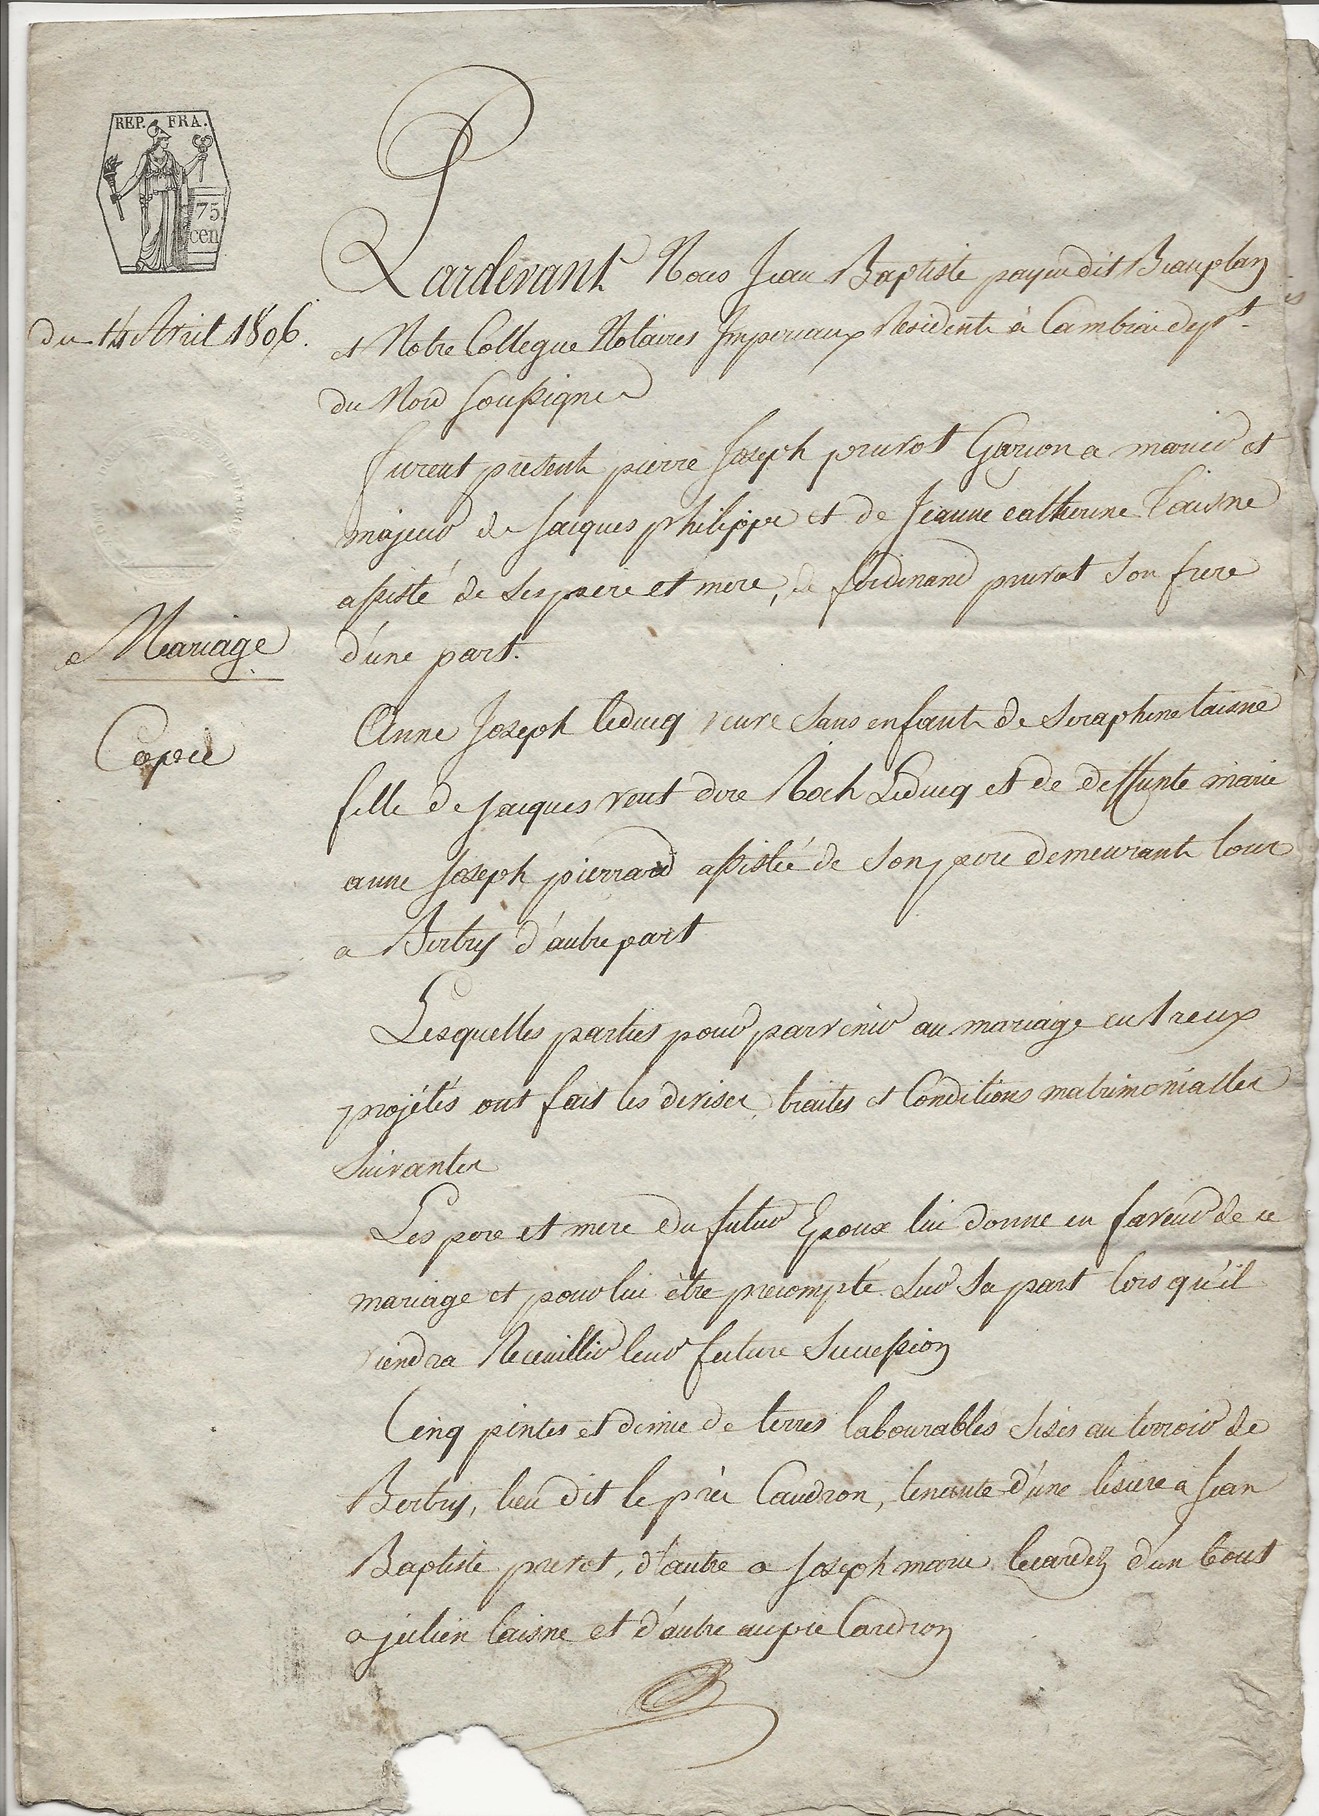 REP. FRA.
75.
cen
du 14 Avril 1806.
Mariage
Copie
Pardevant Nous Jean Baptiste payen dit Beauplan
et Notre Collegue Notaires Imperiaux Residents à Cambrai dept.
du Nord Soussignes
furent presents pierre Joseph pruvot Garçon a marier et
majeur de Jacques philippe et de Jeanne catherine Laisne
assisté de ses pere et mere, de ferdinand pruvot son frere
d'une part.
Anne Joseph Leducq veuve sans enfants de Seraphin Laisne
fille de Jacques veut dire Roch Leducq et de deffunte marie
anne Joseph pierrard assistée de son pere demeurants tous
a Bertry d'autre part
Lesquelles parties pour parvenir au mariage entreux
projétés ont fait les devises, traités et Conditions matrimonialles
suivantes
Les pere et mere du futur Epoux lui donne en faveur de ce
mariage et pour lui être precompté sur sa part lors qu'il
viendra Receuillir leur future Succession
Cinq pintes et demie de terres labourables sises au terroir de
Bertry, lieu dit le prés Caudron, tenante d'une lisiere a Jean
Baptiste pruvot, d'autre a Joseph marie Lecardez d'un bout
a julien Laisne et d'autre au pre Caudron